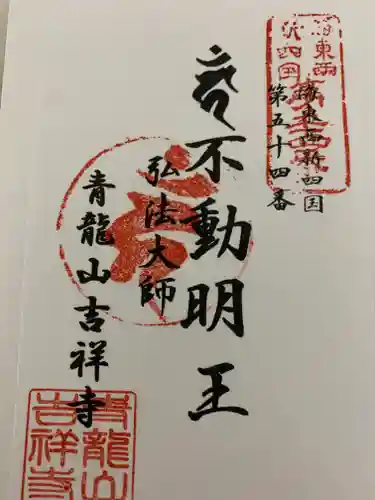 猿東西新四国
第五十四番
不動明王
弘法大師
青龍山吉祥寺
青龍山
吉祥寺